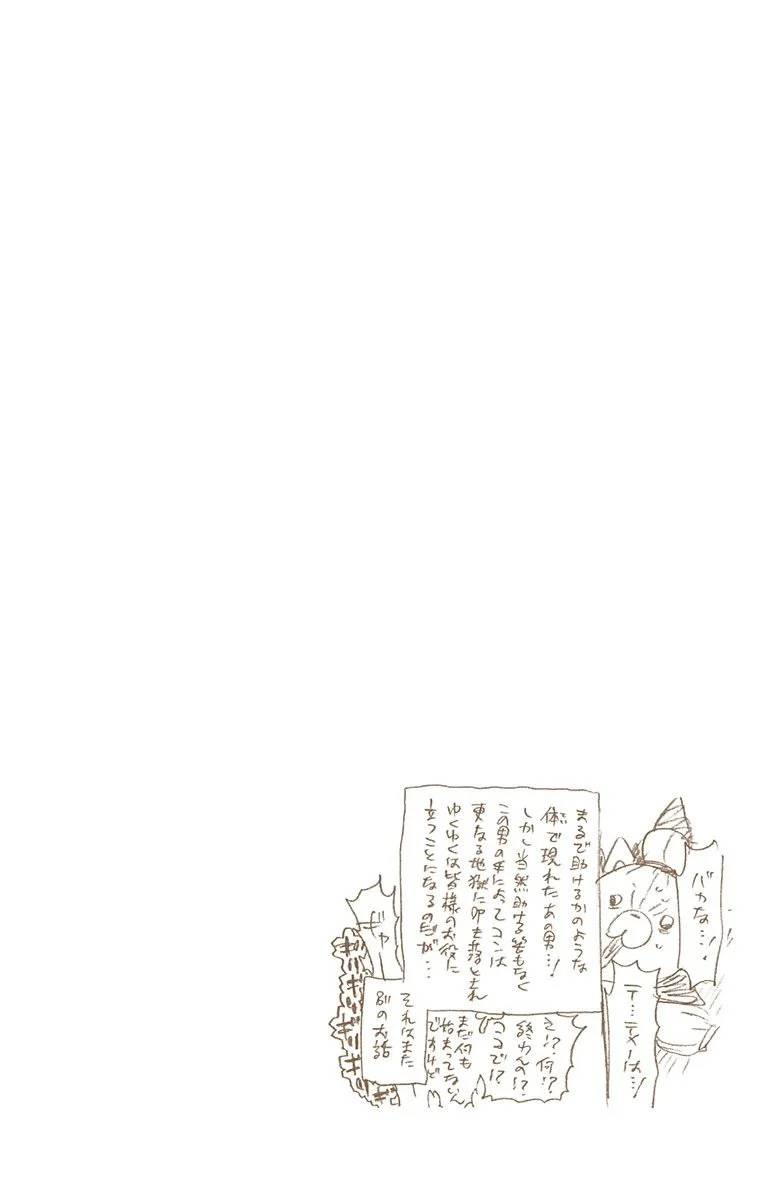 バカな…!
テ…テメーは…!
まるで助けるかのような
体で現れたあの男…!
しかし当然助ける筈もなく
この男の手によってコンは
更なる地獄に叩き落とされ
ゆくゆくは皆様のお役に
立つことになるのだが…
え!?何!?
終わんの!?
ココで!?
まだ何も
始まってないん
ですけど
それはまた
別のお話
ギャ